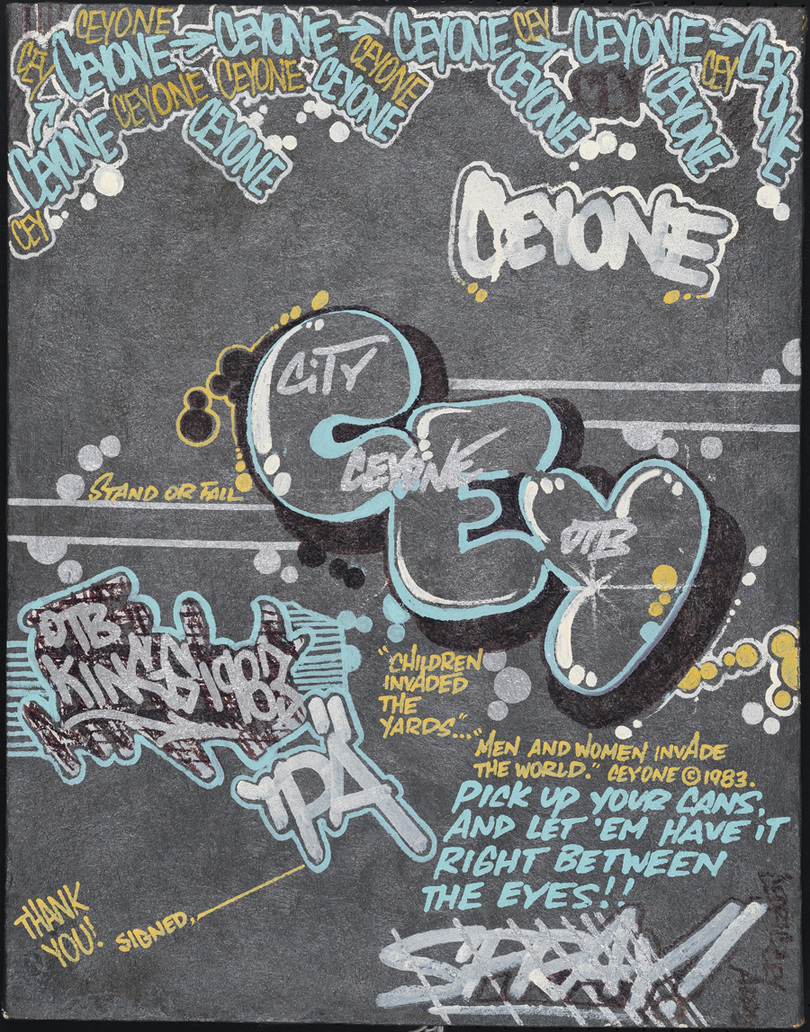 CEYONE
CEY
CEYONE
CEYONE
CEYONE
CEY
CEYONE
CEY
CEYONE
CEYONE
CEYONE
CEYONE
CEYONE
CEYONE
CEY
CEYONE
CEY
CEYONE
CEYONE
CEYONE
CEY
CEYONE
CITY
CEY
CEYONE
OTB
STAND OR FALL
OTB
KINGS 1982
83
"CHILDREN
INVADED
THE
YARDS..."
"MEN AND WOMEN INVADE
THE WORLD." CEYONE © 1983.
PA
PICK UP YOUR CANS,
AND LET 'EM HAVE iT
RIGHT BETWEEN
THE EYES!!
THANK
YOU!
SIGNED,
SPRAY